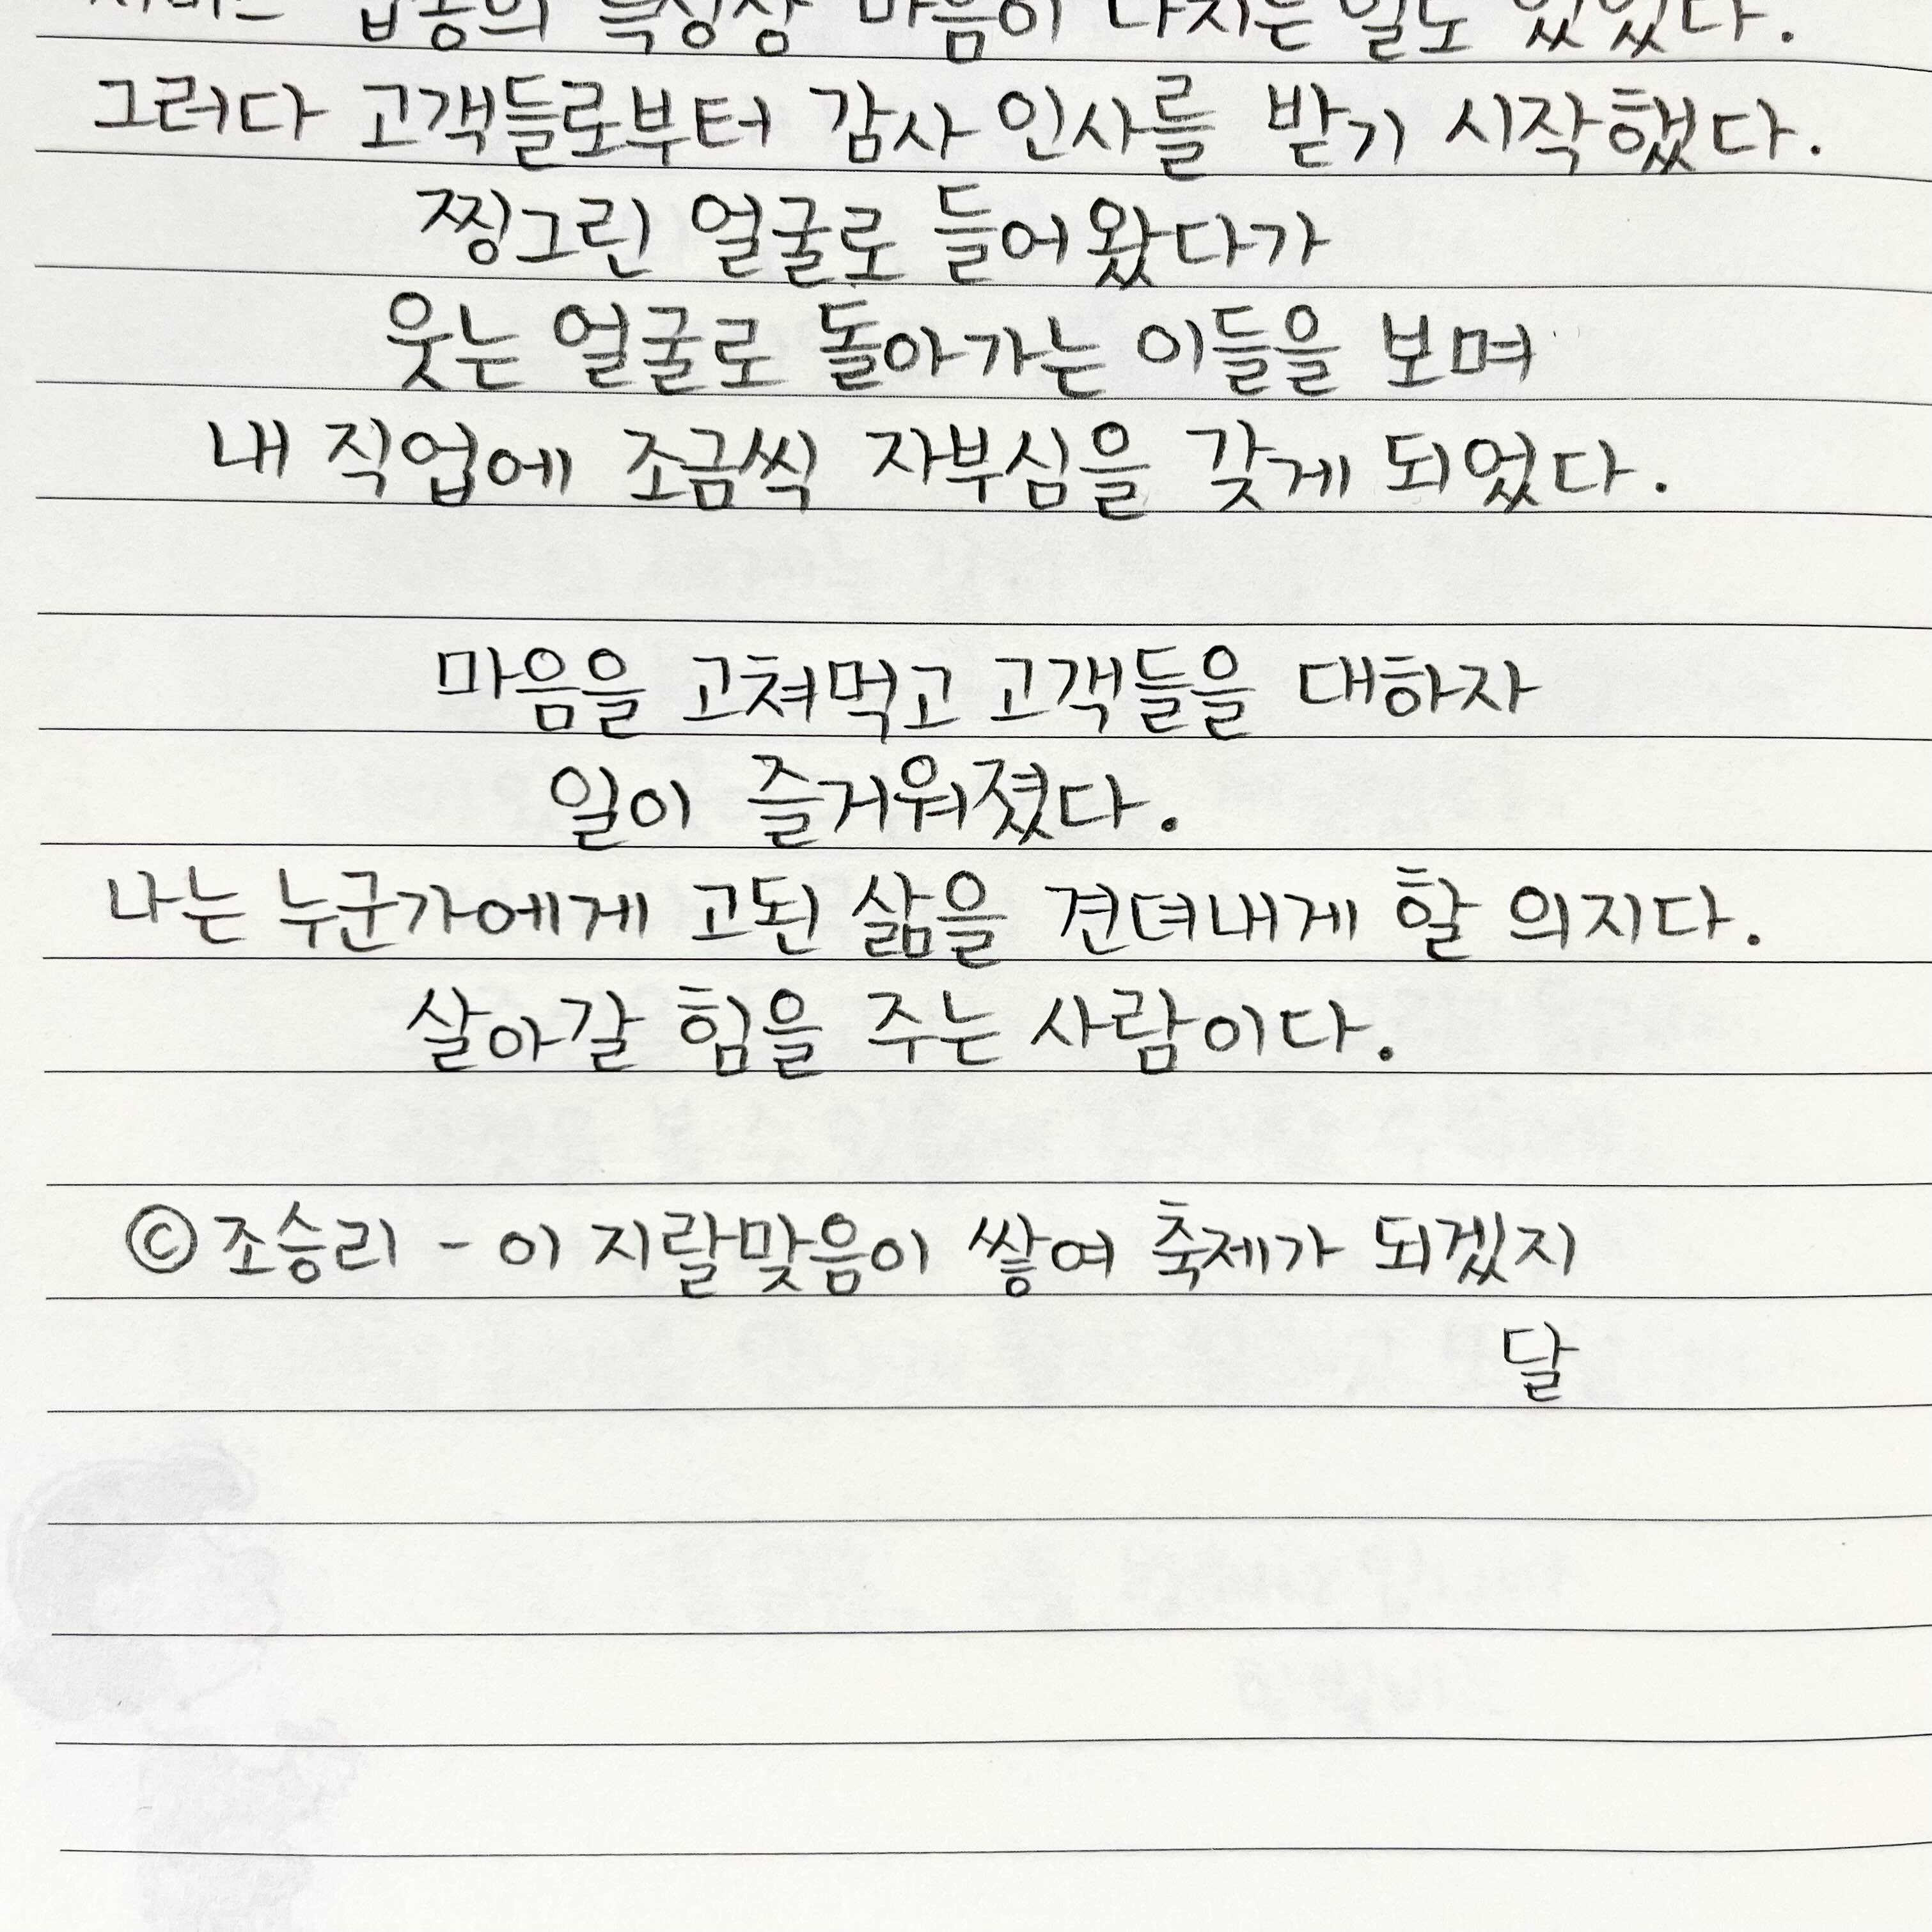 서비스 업종의 특성상 마음이 다치는 일도 있었다.
그러다 고객들로부터 감사 인사를 받기 시작했다.
찡그린 얼굴로 들어왔다가
웃는 얼굴로 돌아가는 이들을 보며
내 직업에 조금씩 자부심을 갖게 되었다.
마음을 고쳐먹고 고객들을 대하자
일이 즐거워졌다.
나는 누군가에게 고된 삶을 견뎌내게 할 의지다.
살아갈 힘을 주는 사람이다.
ⓒ조승리 - 이 지랄맞음이 쌓여 축제가 되겠지
달